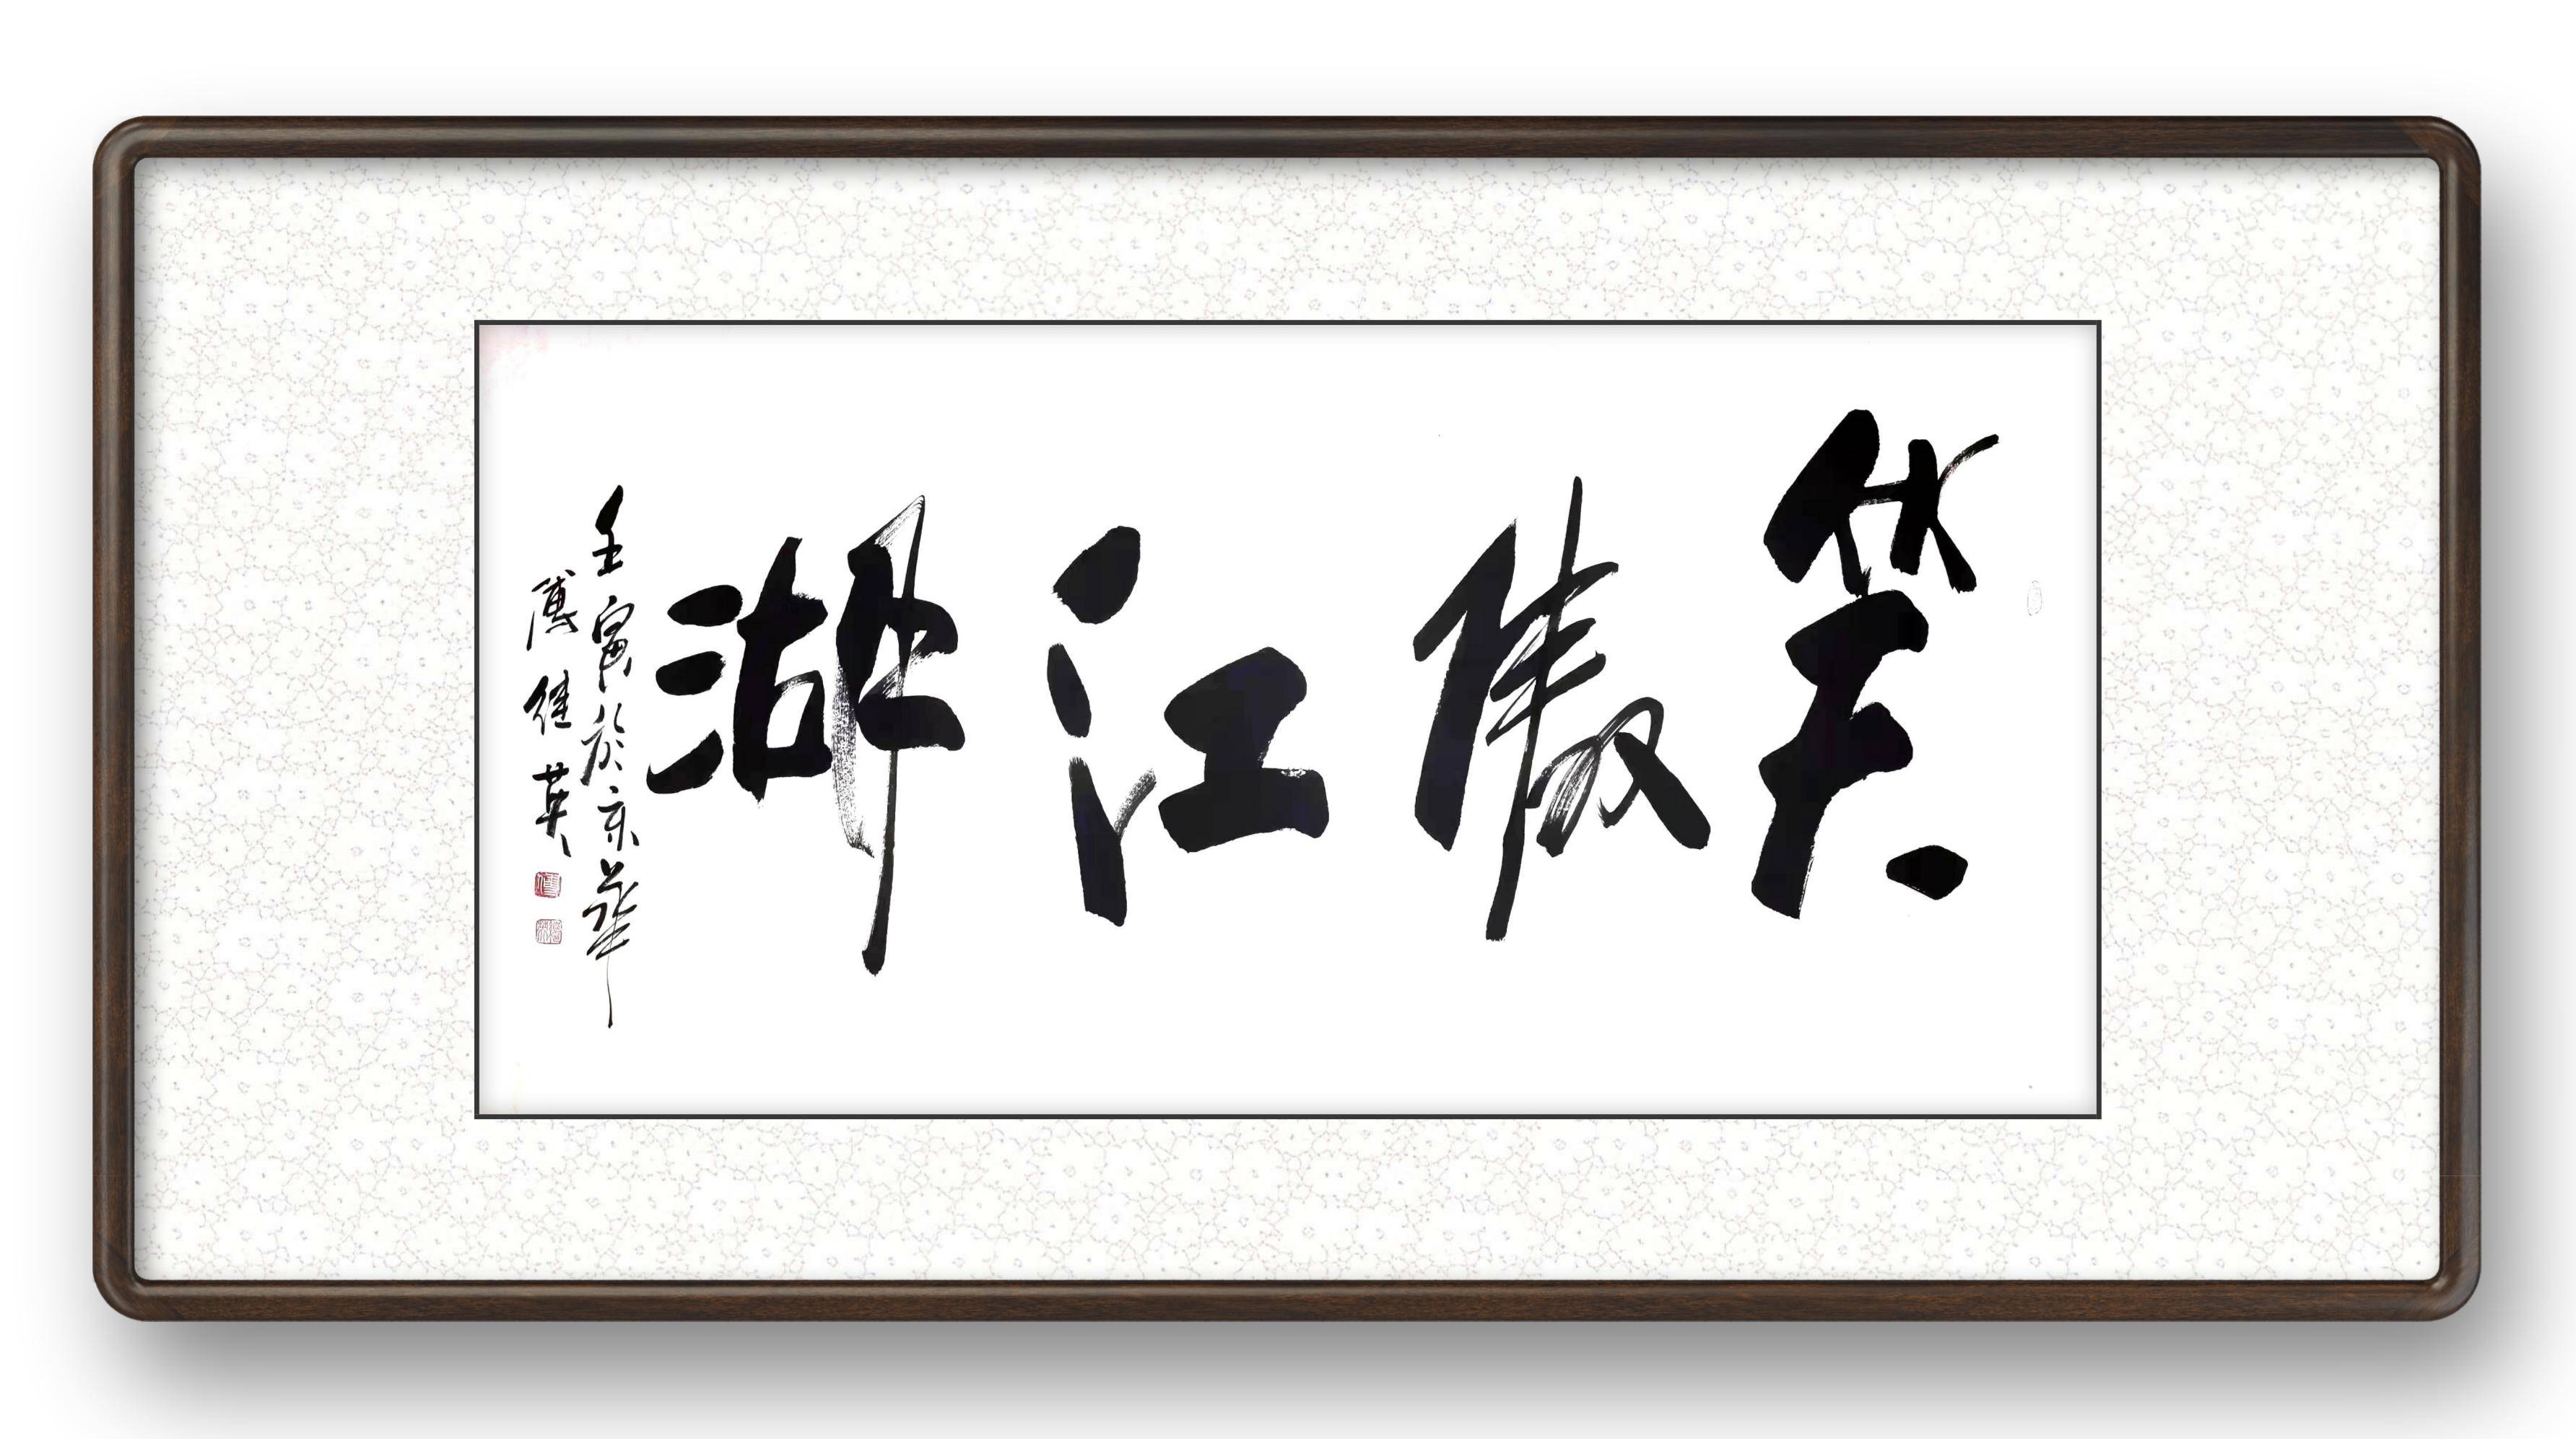 笑傲江湖
壬寅於京華
傅继英